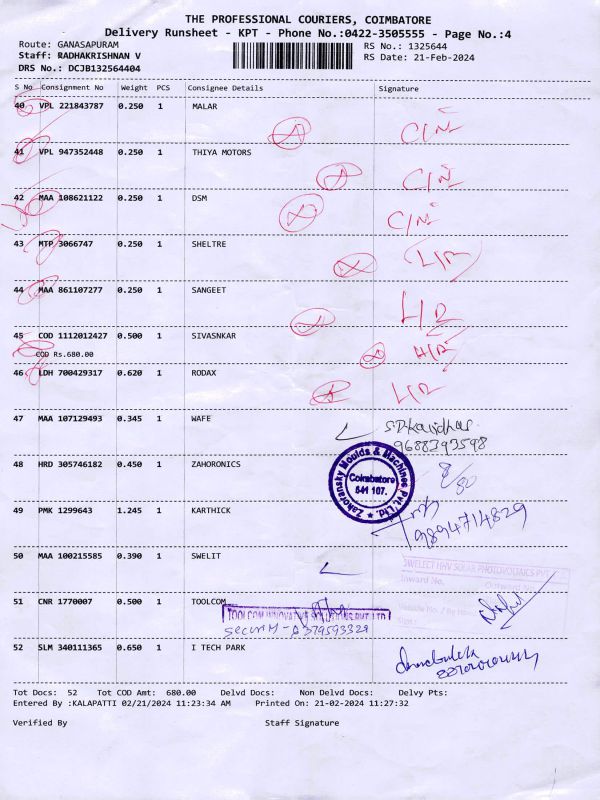 THE PROFESSIONAL COURIERS, COIMBATORE
Delivery Runsheet - KPT - Phone No.:0422-3505555 - Page No.:4
Route: GANASAPURAM
RS No.: 1325644
Staff: RADHAKRISHNAN V
RS Date: 21-Feb-2024
DRS No.: DCJB132564404
S No Consignment No Weight PCS Consignee Details Signature
40 VPL 221843787 0.250 1 MALAR
C/N
41 VPL 947352448 0.250 1 THIYA MOTORS
C/N
42 MAA 108621122 0.250 1 DSM
C/N
43 MTP 3066747 0.250 1 SHELTRE
L/R
44 MAA 861107277 0.250 1 SANGEET
L/R
45 COD 1112012427 0.500 1 SIVASNKAR
COD Rs.680.00
46 LDH 700429317 0.620 1 RODAX
L/R
47 MAA 107129493 0.345 1 WAFE
9688393598
48 HRD 305746182 0.450 1 ZAHORONICS
Zahoransky Moulds & Machines Pvt. Ltd.
Coimbatore
641 107.
49 PMK 1299643 1.245 1 KARTHICK
9894714829
50 MAA 100215585 0.390 1 SWELIT
SWELECT HHV SOLAR PHOTOVOLTAICS PVT
Inward No.
51 CNR 1770007 0.500 1 TOOLCOM
TOOLCOM INNOVATIVE SOLUTIONS PVT LTD
52 SLM 340111365 0.650 1 I TECH PARK
Tot Docs: 52 Tot COD Amt: 680.00 Delvd Docs: Non Delvd Docs: Delvy Pts:
Entered By :KALAPATTI 02/21/2024 11:23:34 AM Printed On: 21-02-2024 11:27:32
Verified By Staff Signature